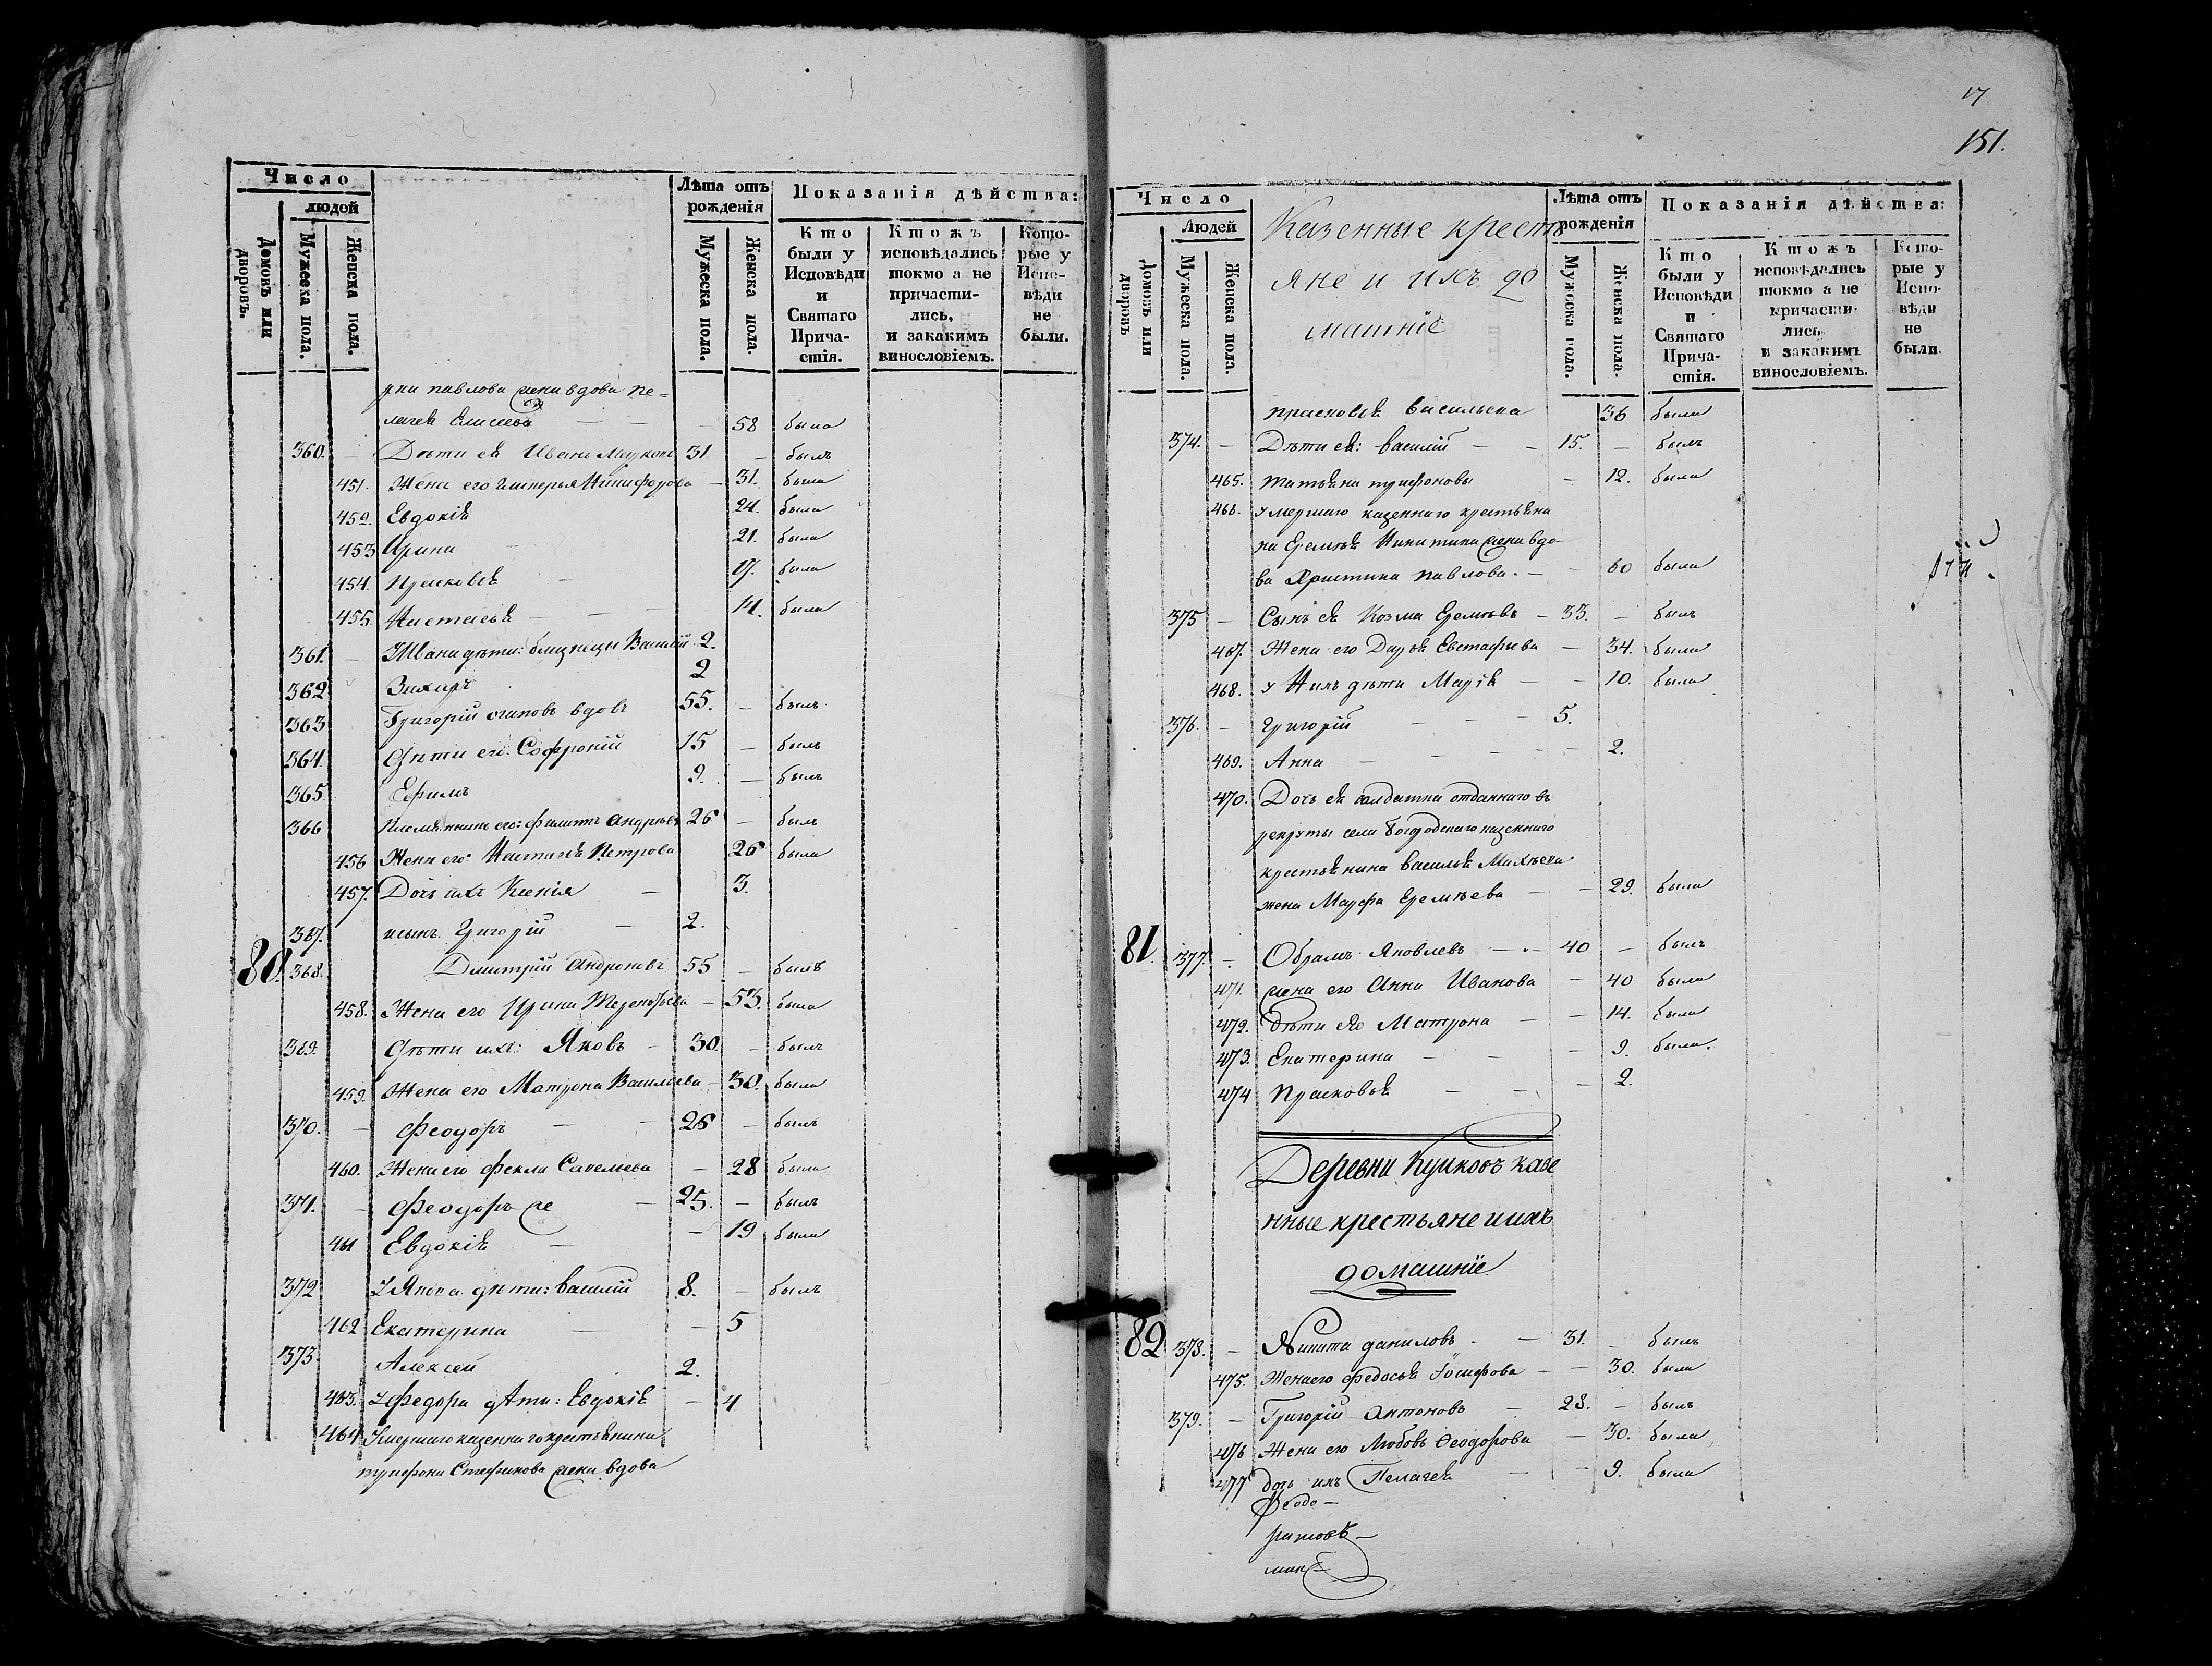 Число
людей
Домовъ или дворовъ.
Мужеска пола.
Женска пола.
Лѣта отъ рожденія
Мужеска пола.
Женска пола.
Показанія дѣйства:
Кто были у Исповѣди и Святаго Причастія.
Ктожъ исповѣдались токмо а не причастились, и закакимъ винословіемъ.
Которые у Исповѣди не были.
павлова жена вдова Пе-
лагея Елисеева — 58 была
360. Дѣти ея Иванъ 31 — былъ
451. Жена его Никифорова — 31. была
452. Евдокія 24. была
453 Ирина — 21. была
454. Прасковья — 17. была
455. Настасья — 14. была
361. — Ивана дѣти: близнецы Василій 2.
362 Захаръ 2
363 Григорій вдовъ 55. — былъ
364. Дѣти его: Софроній 15 — былъ
365 Ефимъ 9. — былъ
366 Племянникъ его: филиппъ андреевъ 26 — былъ
456 Жена его: Настасья Петрова 26 была
457. Дочь ихъ Ксенія — 3.
367. исынъ Григорій — 2.
80. 368. Дмитрій Андроновъ 55 — былъ
458. Жена его Ирина Терентьева — 53. была
369. Дѣти ихъ: Яковъ — 30. — былъ
459. Жена его Матрона Васильева — 30. была
370. — Феодоръ — 26 — былъ
460. Жена его фекла Савельева — 28 была
371. — Феодоръ же — 25. — былъ
461 Евдокія — 19 была
372 У Якова дѣти: василій 8. — былъ
462 Екатерина — 5
373 Алексей 2.
463. У Федора дѣти: Евдокія — 4
464 Умершаго казеннаго крестьянина
трифона Стефанова жена вдова
17
151.
Число
Людей
Домовъ или дворовъ
Мужеска пола.
Женска пола.
Казенные кресть
яне и ихъ до
машніе
Лѣта отъ рожденія
Мужеска пола.
Женска пола.
Показанія дѣйства:
Кто были у Исповѣди и Святаго Причастія.
Ктожъ исповѣдались токмо а не причастились и закакимъ винословіемъ.
Которые у Исповѣди не были.
прасковья васильева 36 была
374. — Дѣти ея: василій — 15. — былъ
465. татьяна трифоновы — 12. была
466. умершаго казеннаго крестьяни
на Еремѣя Никитина жена вдо-
ва Христина павлова. — 60 была
375 — Сынъ ея Козма Еремѣевъ — 33. — былъ
467. Жена его Дарья Евстафьева — 34. была
468. у Нихъ дѣти Марія — 10. была
376. — григорій — 5.
469. Анна — 2.
470. Дочь ея солдатка отданнаго въ
рекруты села казеннаго
крестьянина василья Михѣева
жена Марфа Еремѣева — 29. была
81. 377. — Обрамъ Яковлевъ — 40 — былъ
471. жена его Анна Иванова — 40 была
472. Дѣти его Матрона — 14. была
473. Екатерина — 9. была.
474 Прасковья — 2.
Деревни казе
нные крестьяне иихъ
домашніе.
82 378. — Никита даниловъ — 31. — былъ
475. Жена его федосья Іосифова — 30. была
379. — Григорій Антоновъ — 28. — былъ
476 Жена его Любовь Ѳеодорова — 30. была
477 дочь ихъ Пелагея — 9. была